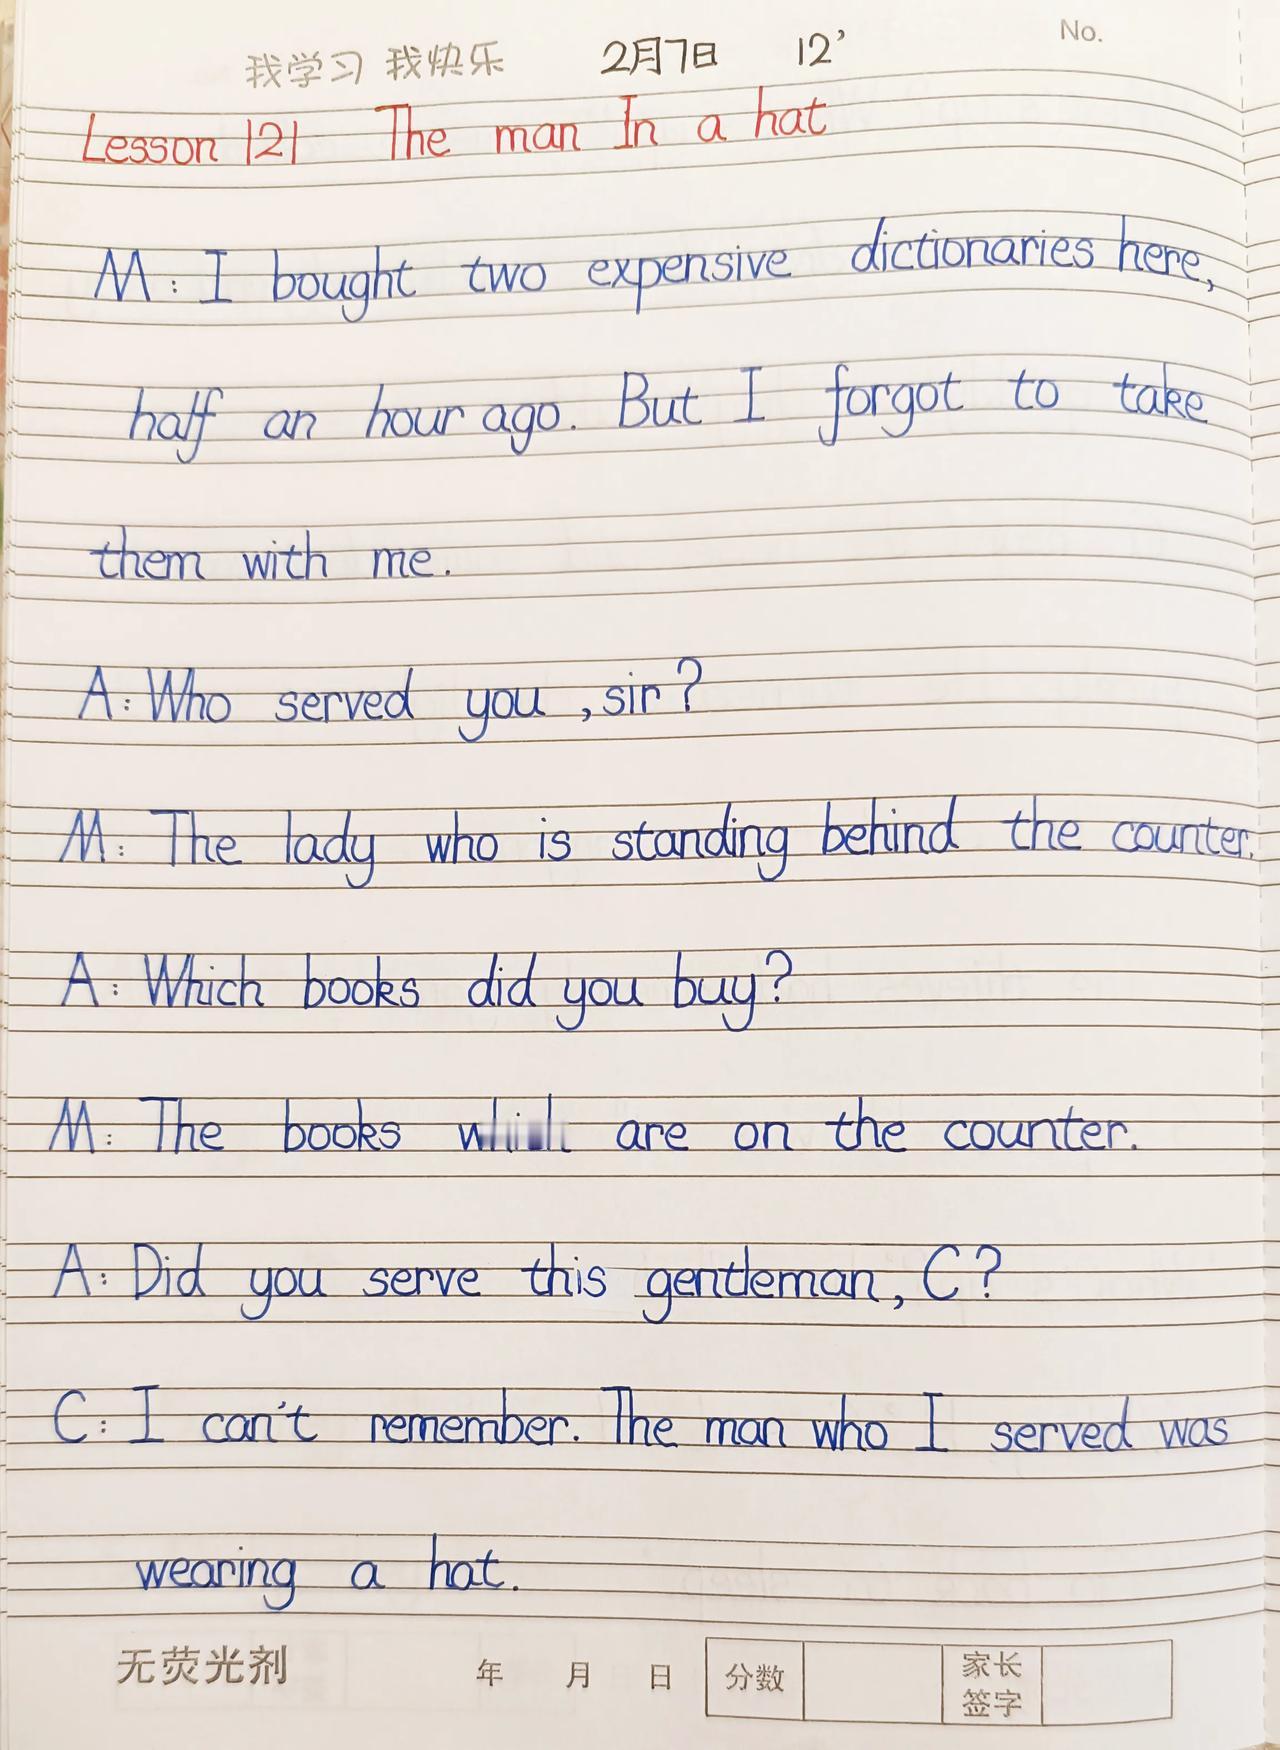 No.
我学习 我快乐 2月7日 12'
Lesson 121 The man In a hat
M: I bought two expensive dictionaries here,
half an hour ago. But I forgot to take
them with me.
A: Who served you, sir?
M: The lady who is standing behind the counter.
A: Which books did you buy?
M: The books are on the counter.
A: Did you serve this gentleman, C?
C: I can't remember. The man who I served was
wearing a hat.
无荧光剂 年 月 日 分数 家长签字